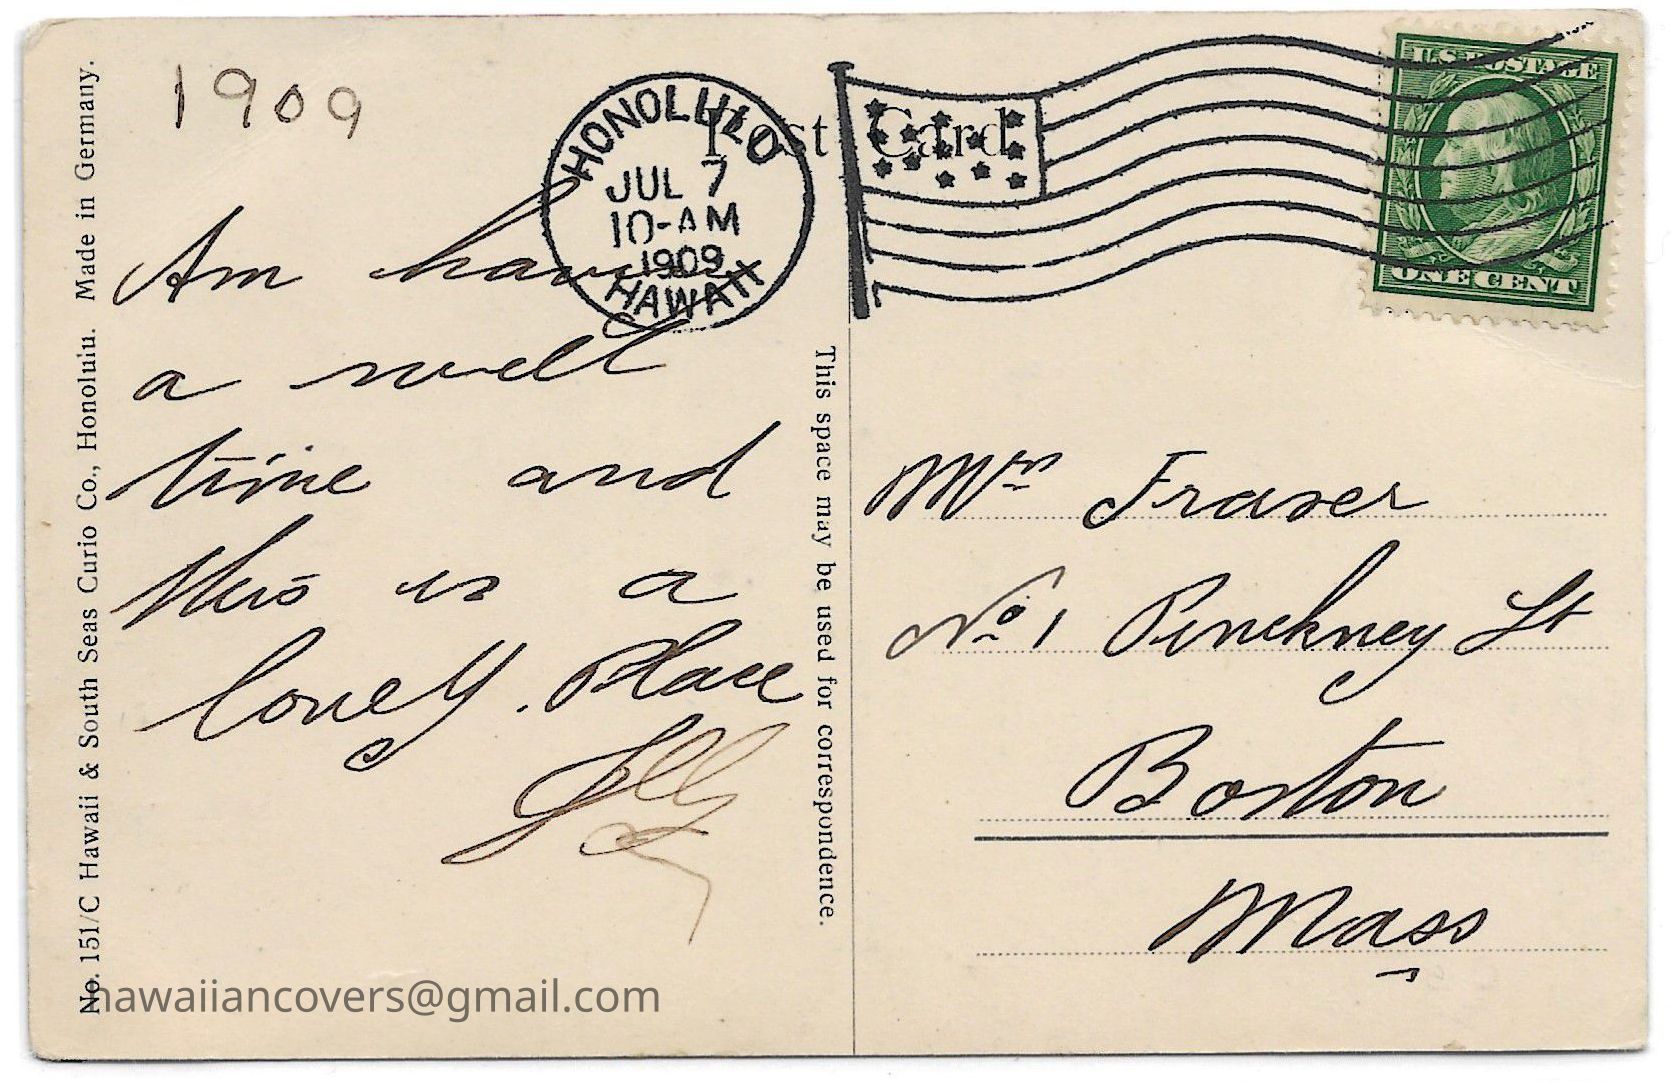 1909
HONOLULU
JUL 7
10-AM
1909
HAWAII
Post Card
U.S. POSTAGE
ONE CENT
Am having
a swell
time and
this is a
lovely. Place
This space may be used for correspondence.
Mrs Fraser
No 1 Pinckney St
Boston
Mass
No. 151/C Hawaii & South Seas Curio Co., Honolulu. Made in Germany.
hawaiiancovers@gmail.com